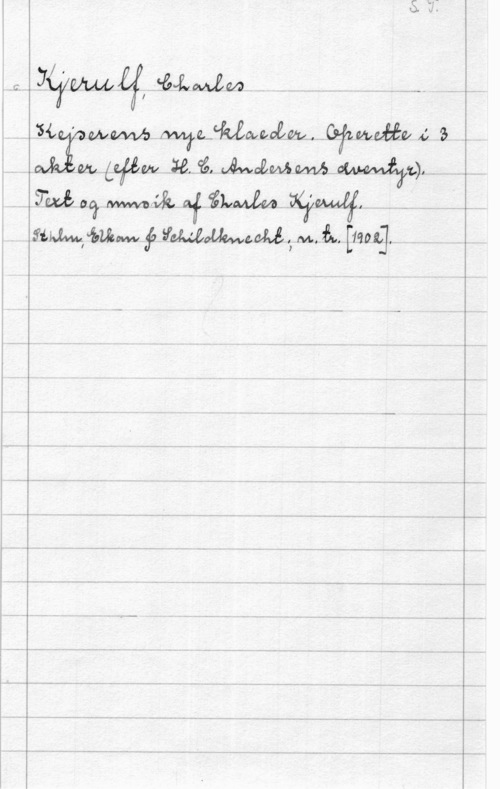 S. T.
Kjerulf, Charles
Kejserens nye klaeder. Operette i 3
akter (efter H. C. Andersens æventyr).
Text og musik af Charles Kjerulf.
Sthlm, Elkan & Schildknecht; n. tr. [1902].